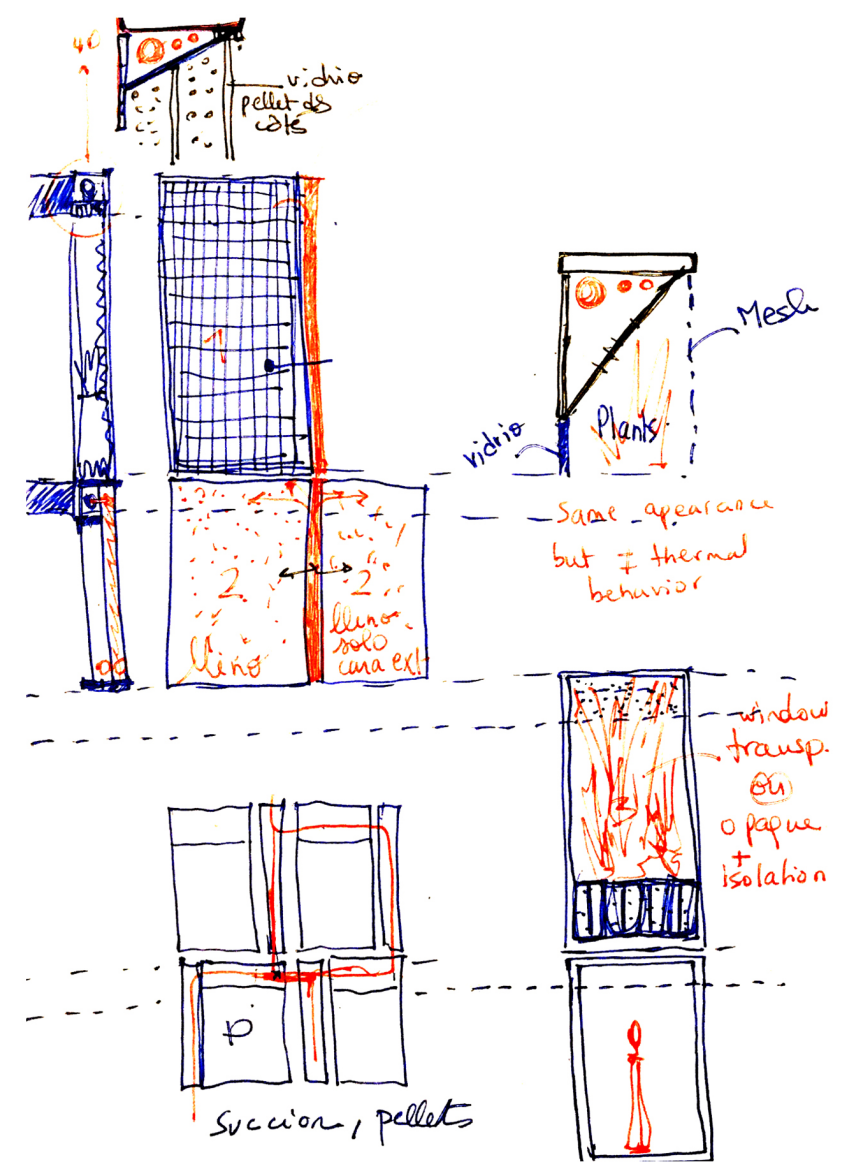 40
vidrio
pellet ds
côté
1
Mesh
vidrio
Plants
Same apearance
but ≠ thermal
behavior
2
lleno
2
lleno
solo
cara ext
window
transp.
ou
opaque
+
isolation
P
succion, pellets